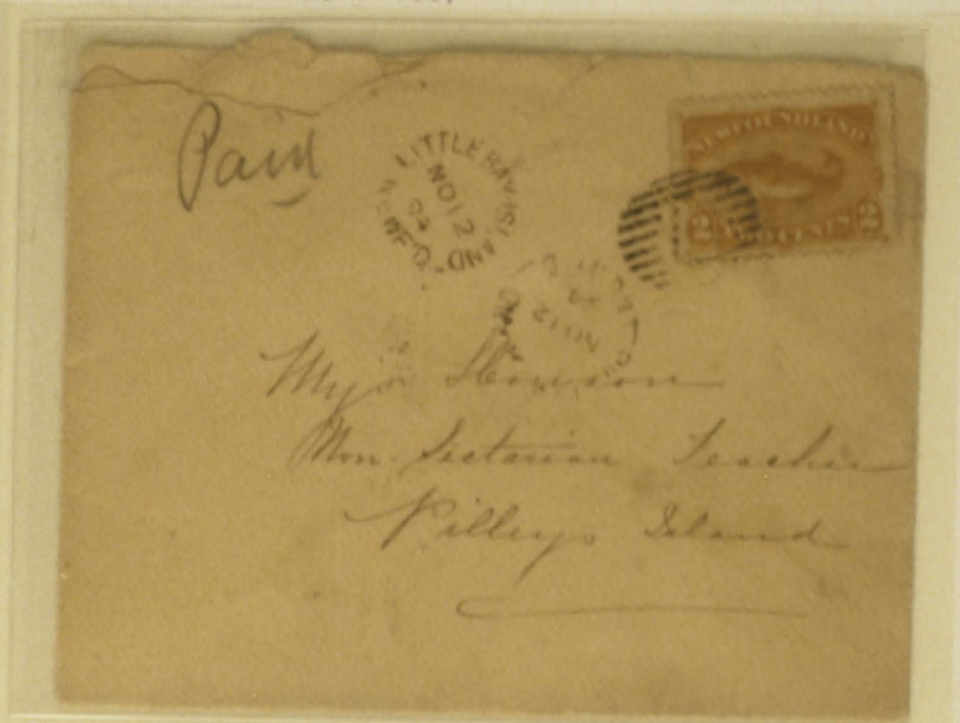 Paid
LITTLE BAY ISLAND
NO 12
94
NEWF'D
NEWFOUNDLAND
2 TWO CENTS 2
NO 12
94
Non. Sectarian Teacher
Pilleys Island